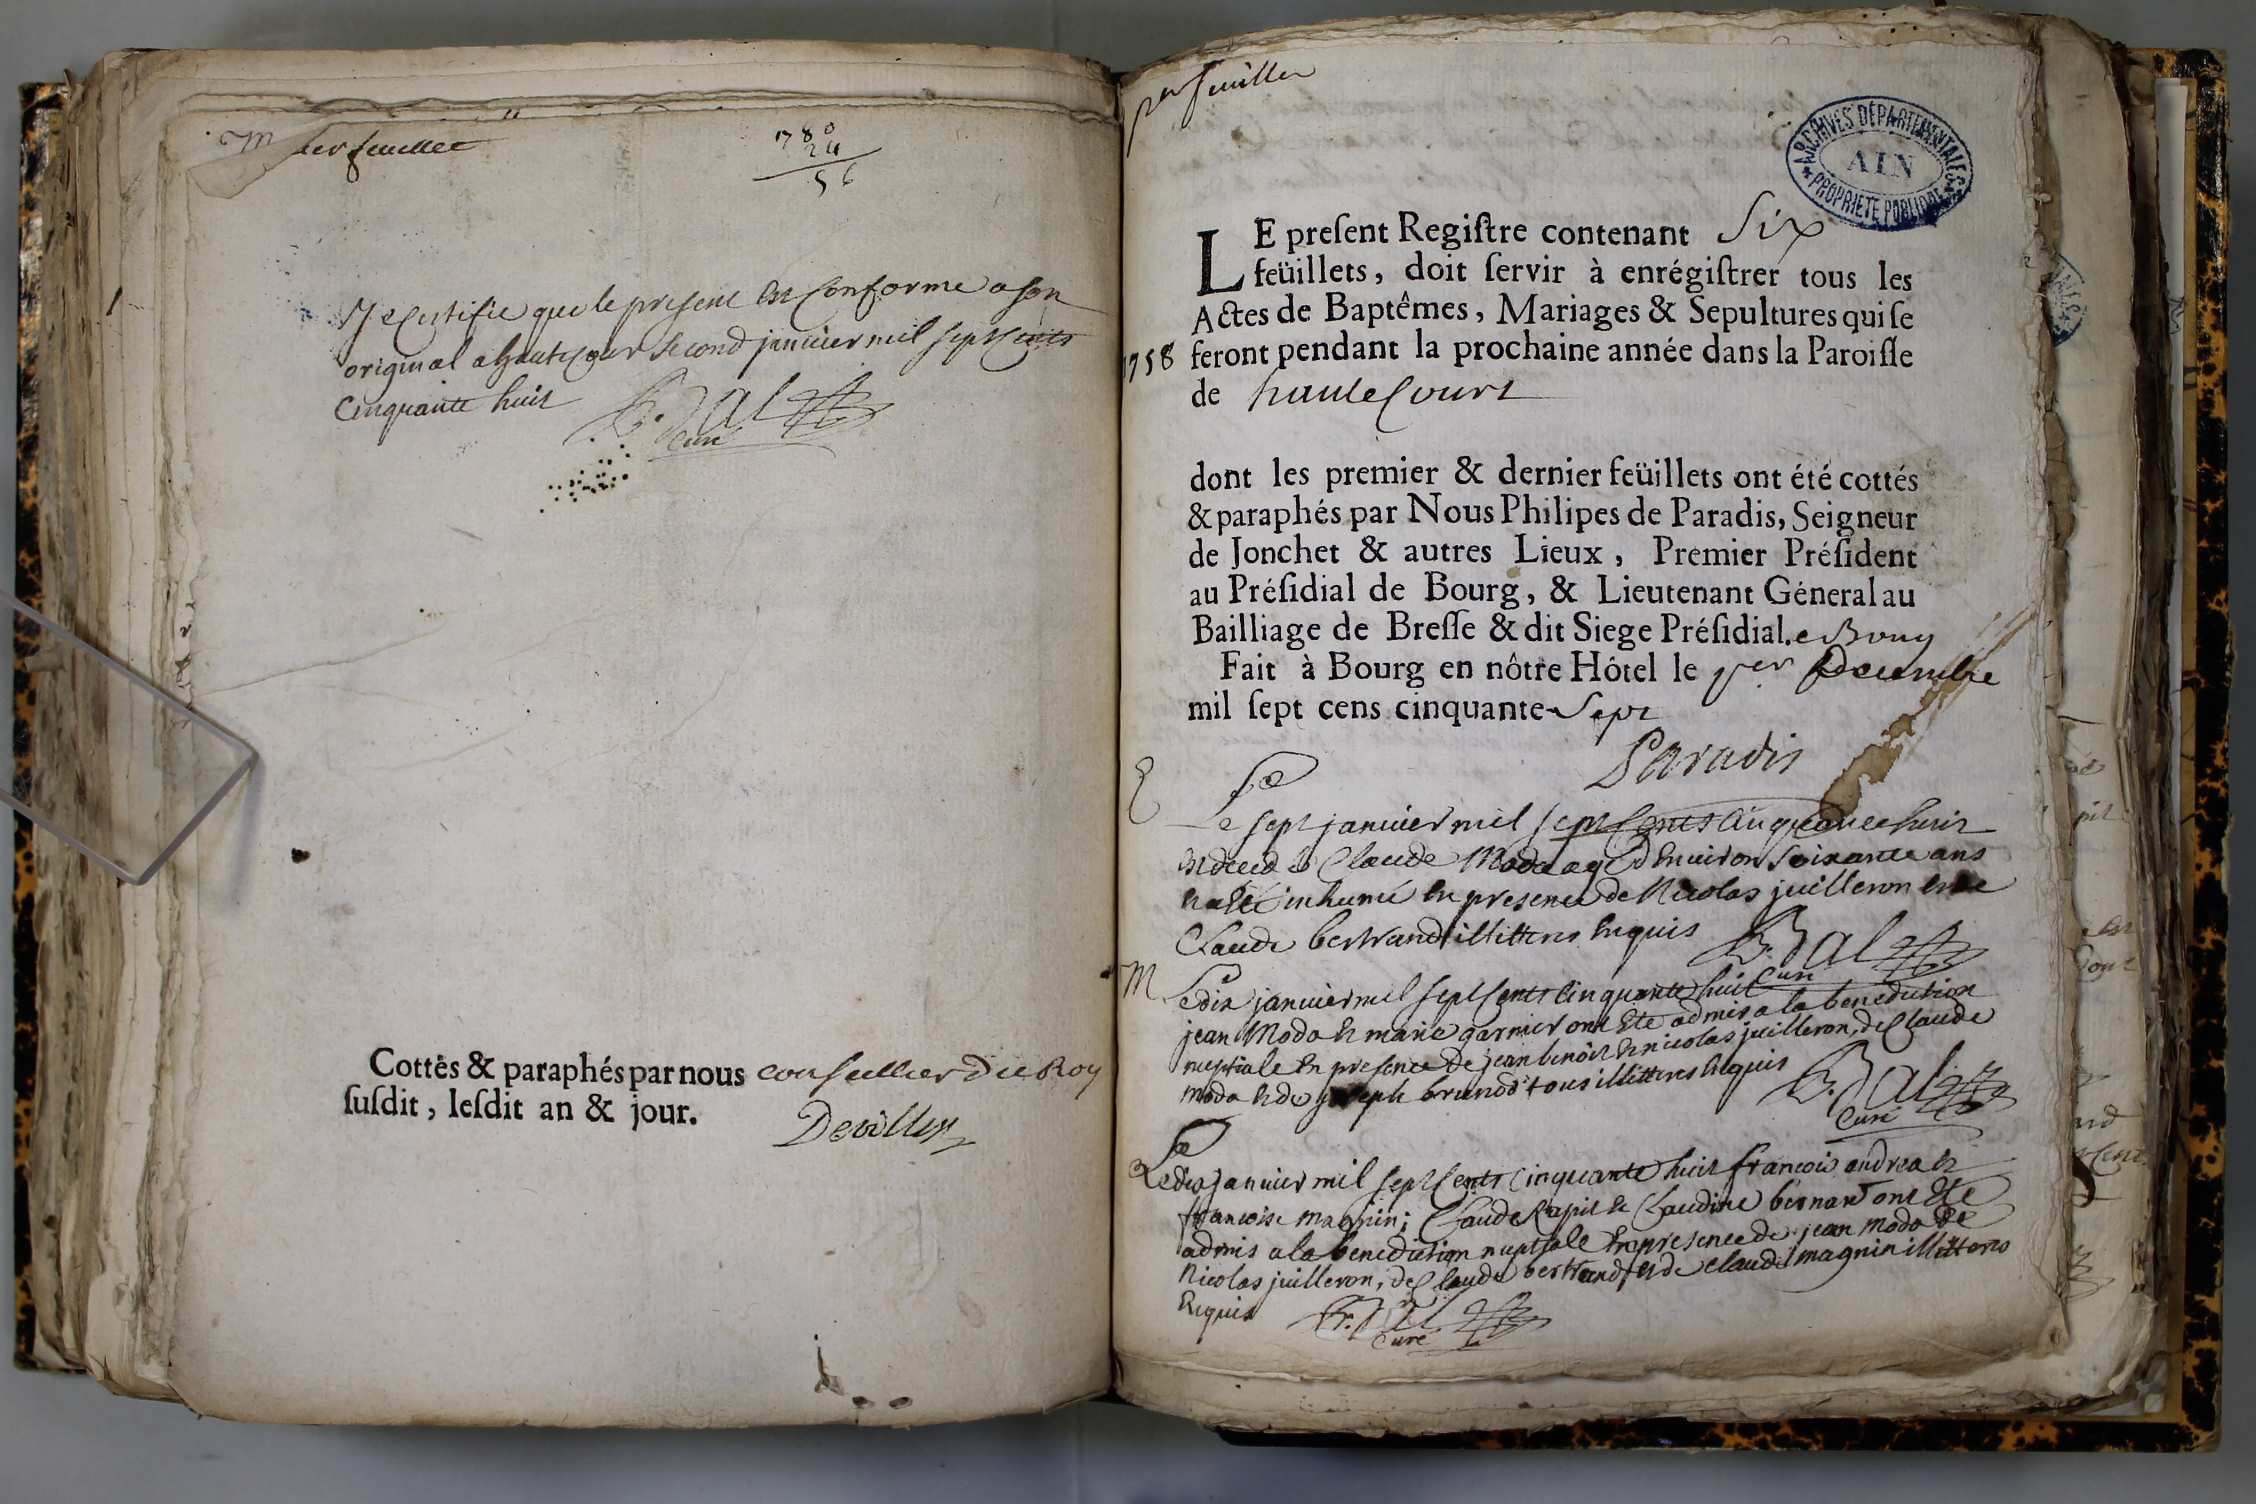 M
der feuillet
1780
24
56
Je Certifie que le present Est Conforme a son
original a hautecour le second janvier mil sept Cents
Cinquante huit
B. Dal
Curé
Cottés & paraphés par nous conseiller du Roy
susdit, lesdit an & jour.
Deviller
per feuillet
ARCHIVES DÉPARTEMENTALES
AIN
PROPRIÉTÉ PUBLIQUE
LE present Registre contenant Six
feüillets, doit servir à enrégistrer tous les
Actes de Baptêmes, Mariages & Sepultures qui se
1758 feront pendant la prochaine année dans la Paroisse
de hauteCourt
dont les premier & dernier feüillets ont été cottés
& paraphés par Nous Philipes de Paradis, Seigneur
de Jonchet & autres Lieux, Premier Président
au Présidial de Bourg, & Lieutenant Géneral au
Bailliage de Bresse & dit Siege Présidial. e Bourg
Fait à Bourg en nôtre Hôtel le per Decembre
mil sept cens cinquante Sept
Paradis
Le sept janvier mil sept Cents Cinquante huit
Est decedé Claude Modo agé d'Environ soixante ans
Et a Eté inhumé En presence de Nicolas juilleron Et de
Claude bertrand illitteres Enquis
B. Dal
Curé
M
Le dix janvier mil sept Cents Cinquante huit
jean Modo Et marie garnier ont Eté admis a la benediction
nuptiale En presence de jean benoit Et nicolas juilleron, de Claude
modo Et de joseph brunod tous illitteres Enquis
B. Dal
Curé
Le dix janvier mil sept Cents Cinquante huit francois andrea Et
francoise magnin; Claude Rapit Et Claudine bernard ont Eté
admis a la benediction nuptiale En presence de jean modo De
Nicolas juilleron, de Claude bertrand, Et de Claude magnin illitteres
Enquis
B. Dal
Curé